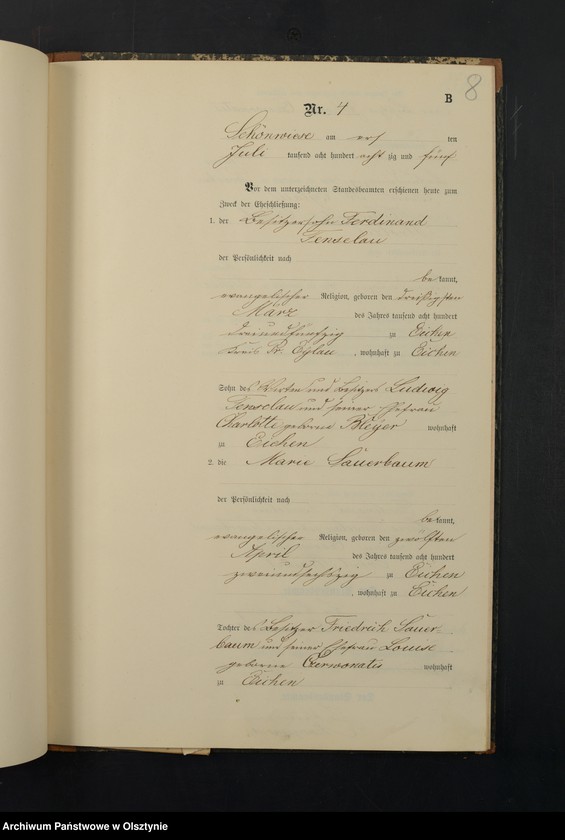 8
B
Nr. 4
Schönwiese am ersten
Juli tausend acht hundert achtzig und fünf
Vor dem unterzeichneten Standesbeamten erschienen heute zum
Zweck der Eheschließung:
1. der Besitzersohn Ferdinand
Fenselau
der Persönlichkeit nach
bekannt,
evangelischer Religion, geboren den dreißigsten
März des Jahres tausend acht hundert
dreiundfünfzig zu Eichen
Kreis Pr. Eylau, wohnhaft zu Eichen
Sohn des und Besitzers Ludwig
Fenselau und seiner Ehefrau
Charlotte geborene wohnhaft
zu Eichen
2. die Marie Sauerbaum
der Persönlichkeit nach
bekannt,
evangelischer Religion, geboren den zwölften
April des Jahres tausend acht hundert
zweiundsechszig zu Eichen
, wohnhaft zu Eichen
Tochter des Besitzer Friedrich Sauer-
baum und seiner Ehefrau Louise
geborene wohnhaft
zu Eichen
Archiwum Państwowe w Olsztynie